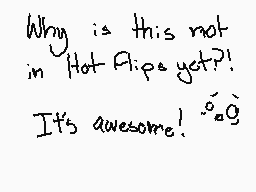 Why is this not
in Hot Flips yet?!
It's awesome!